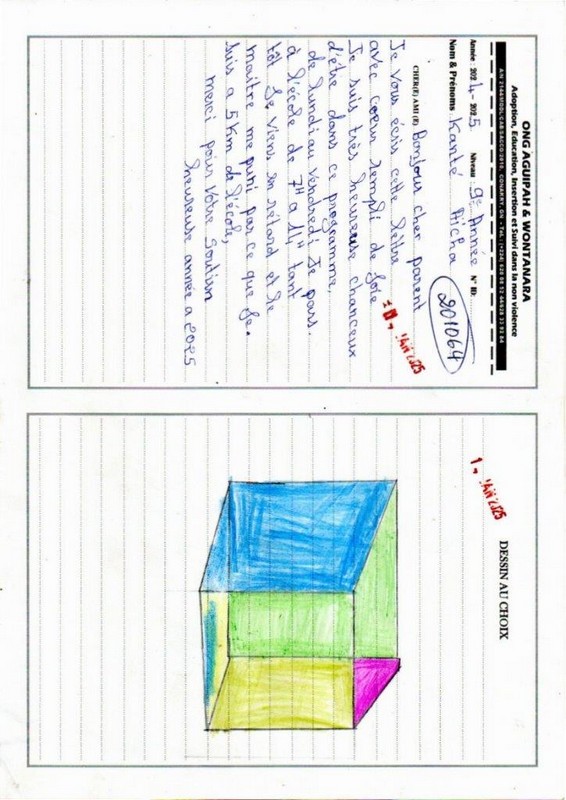 ONG AGUIPAH & WONTANARA
Adoption, Education, Insertion et Suivi dans la non violence
Année : 202 4 - 202 5. Niveau : 9e Année N° ID:
Nom & Prénoms Kanté Aicha
201064
CHER(E) AMI (E) Bonjour cher parent
Je vous écris cette lettre
avec coeur rempli de joie
Je suis très heureuse chanceux
d'être dans ce programme,
de lundi au vendredi Je pars.
à l'école de 7H a 14H tant
tôt Je viens en rétard et le
maitre me puni par ce que Je.
suis a 5 km de l'école,
merci pour votre Soutien
heureuse année a 2025
JAN 2025
DESSIN AU CHOIX
JAN 2025